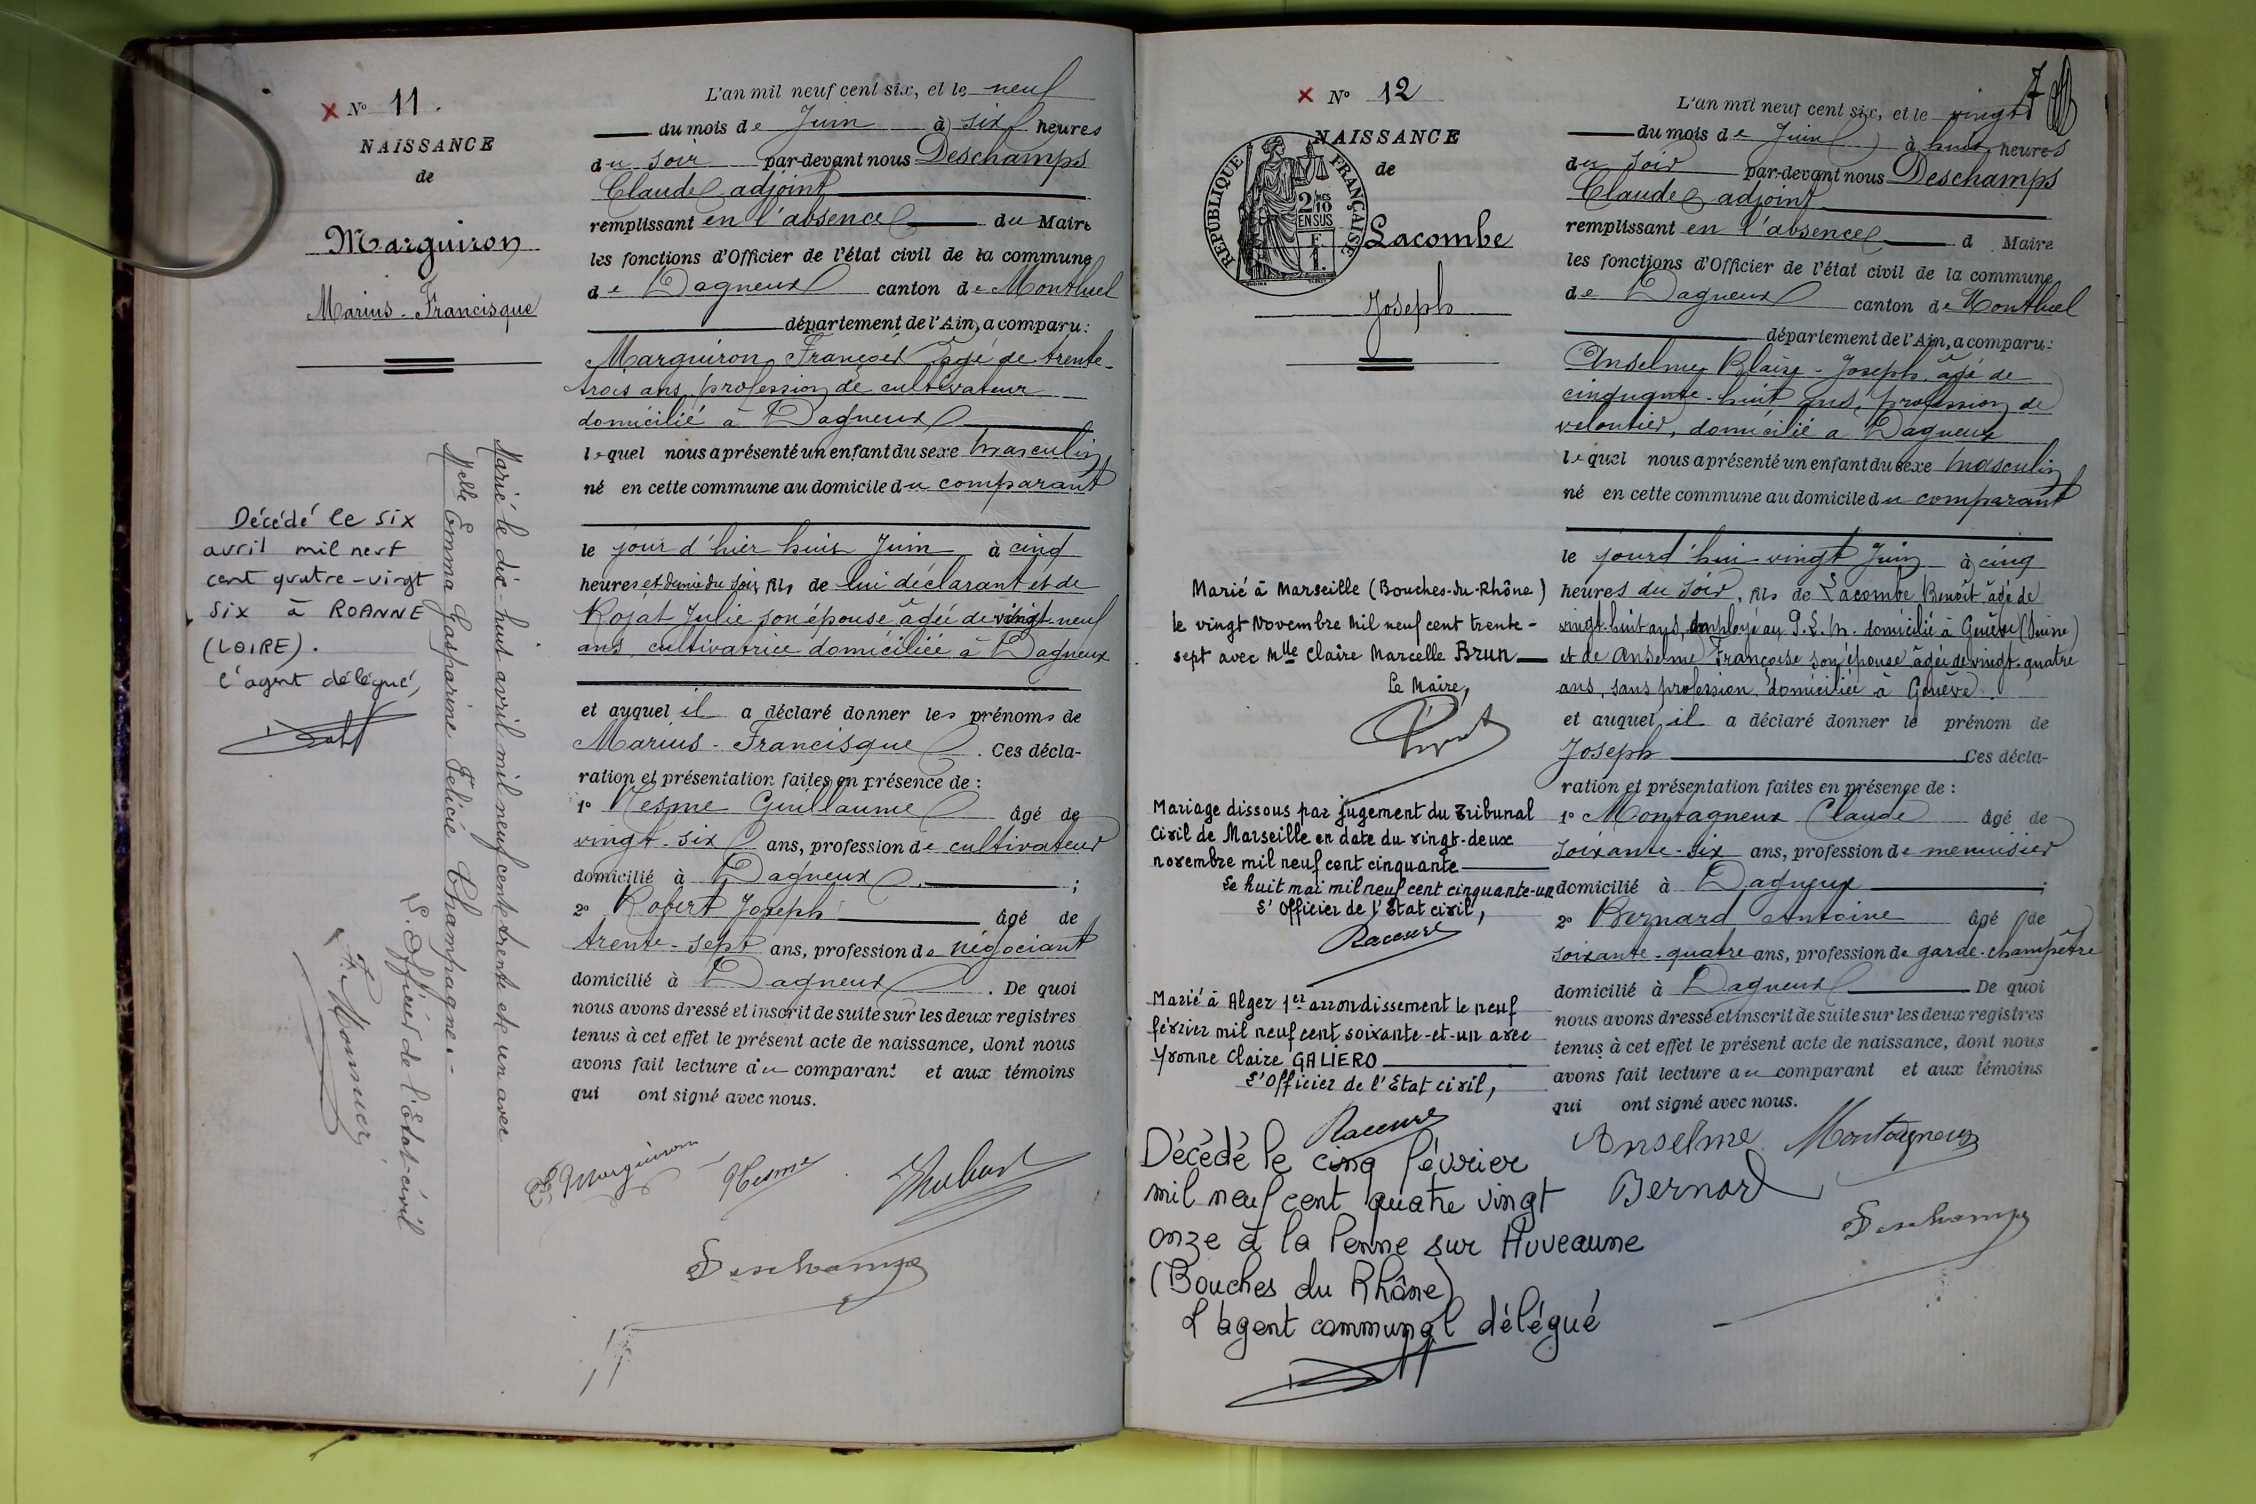 × N° 11.
NAISSANCE
de
Marguiron
Marius-Francisque
Décédé le six
avril mil neuf
cent quatre-vingt
six à ROANNE
(LOIRE).
l'agent délégué,
Marié le dix-huit avril mil neuf cent trente et un avec
Melle Emma Gasparine Félicie Champagne.-
L'Officier de l'Etat-civil
F. Monnier
L'an mil neuf cent six, et le neuf
du mois de Juin à six heures
du soir par-devant nous Deschamps
Claude adjoint
remplissant en l'absence du Maire
les fonctions d'Officier de l'état civil de la commune
de Dagneux canton de Montluel
département de l'Ain, a comparu:
Marguiron François âgé de trente-
trois ans, profession de cultivateur
domicilié à Dagneux
lequel nous a présenté un enfant du sexe masculin
né en cette commune au domicile du comparant
le jour d'hier huit Juin à cinq
heures et demie du soir, fils de lui déclarant et de
Rojat Julie son épouse âgée de vingt-neuf
ans cultivatrice domiciliée à Dagneux
et auquel il a déclaré donner les prénoms de
Marius-Francisque. Ces décla-
ration et présentation faites en présence de:
1° Nesme Guillaume âgé de
vingt-six ans, profession de cultivateur
domicilié à Dagneux;
2° Joseph âgé de
trente-sept ans, profession de négociant
domicilié à Dagneux. De quoi
nous avons dressé et inscrit de suite sur les deux registres
tenus à cet effet le présent acte de naissance, dont nous
avons fait lecture au comparant et aux témoins
qui ont signé avec nous.
F Marguiron Nesme
Deschamps
7
× N° 12
NAISSANCE
de
RÉPUBLIQUE FRANÇAISE
2/10
EN SUS
F
1.
Lacombe
Joseph
Marié à Marseille (Bouches-du-Rhône)
le vingt Novembre mil neuf cent trente-
sept avec Mlle Claire Marcelle Brun
Le Maire,
Mariage dissous par jugement du Tribunal
Civil de Marseille en date du vingt-deux
novembre mil neuf cent cinquante
Le huit mai mil neuf cent cinquante-un
L'Officier de l'Etat civil,
Marié à Alger 1er arrondissement le neuf
février mil neuf cent soixante-et-un avec
Yvonne Claire GALIERO
L'Officier de l'Etat civil,
Décédé le cinq février
mil neuf cent quatre vingt
onze à la Penne sur Huveaune
(Bouches du Rhône)
L'agent communal délégué
L'an mil neuf cent six, et le vingt
du mois de Juin à huit heures
du soir par-devant nous Deschamps
Claude adjoint
remplissant en l'absence d Maire
les fonctions d'Officier de l'état civil de la commune
de Dagneux canton de Montluel
département de l'Ain, a comparu:
Anselme Blaise-Joseph, âgé de
cinquante-huit ans, profession de
veloutier, domicilié à Dagneux
lequel nous a présenté un enfant du sexe masculin
né en cette commune au domicile du comparant
le jourd'hui vingt Juin à cinq
heures du soir, fils de Lacombe Benoît âgé de
vingt-huit ans, employé au P.L.M. domicilié à Genève (Suisse)
et de Anselme Françoise son épouse âgée de vingt-quatre
ans, sans profession, domiciliée à Genève
et auquel il a déclaré donner le prénom de
Joseph Ces décla-
ration et présentation faites en présence de:
1° Montagneux Claude âgé de
soixante-six ans, profession de menuisier
domicilié à Dagneux;
2° Bernard Antoine âgé de
soixante-quatre ans, profession de garde-champêtre
domicilié à Dagneux De quoi
nous avons dressé et inscrit de suite sur les deux registres
tenus à cet effet le présent acte de naissance, dont nous
avons fait lecture au comparant et aux témoins
qui ont signé avec nous.
Anselme Montagneux
Bernard
Deschamps